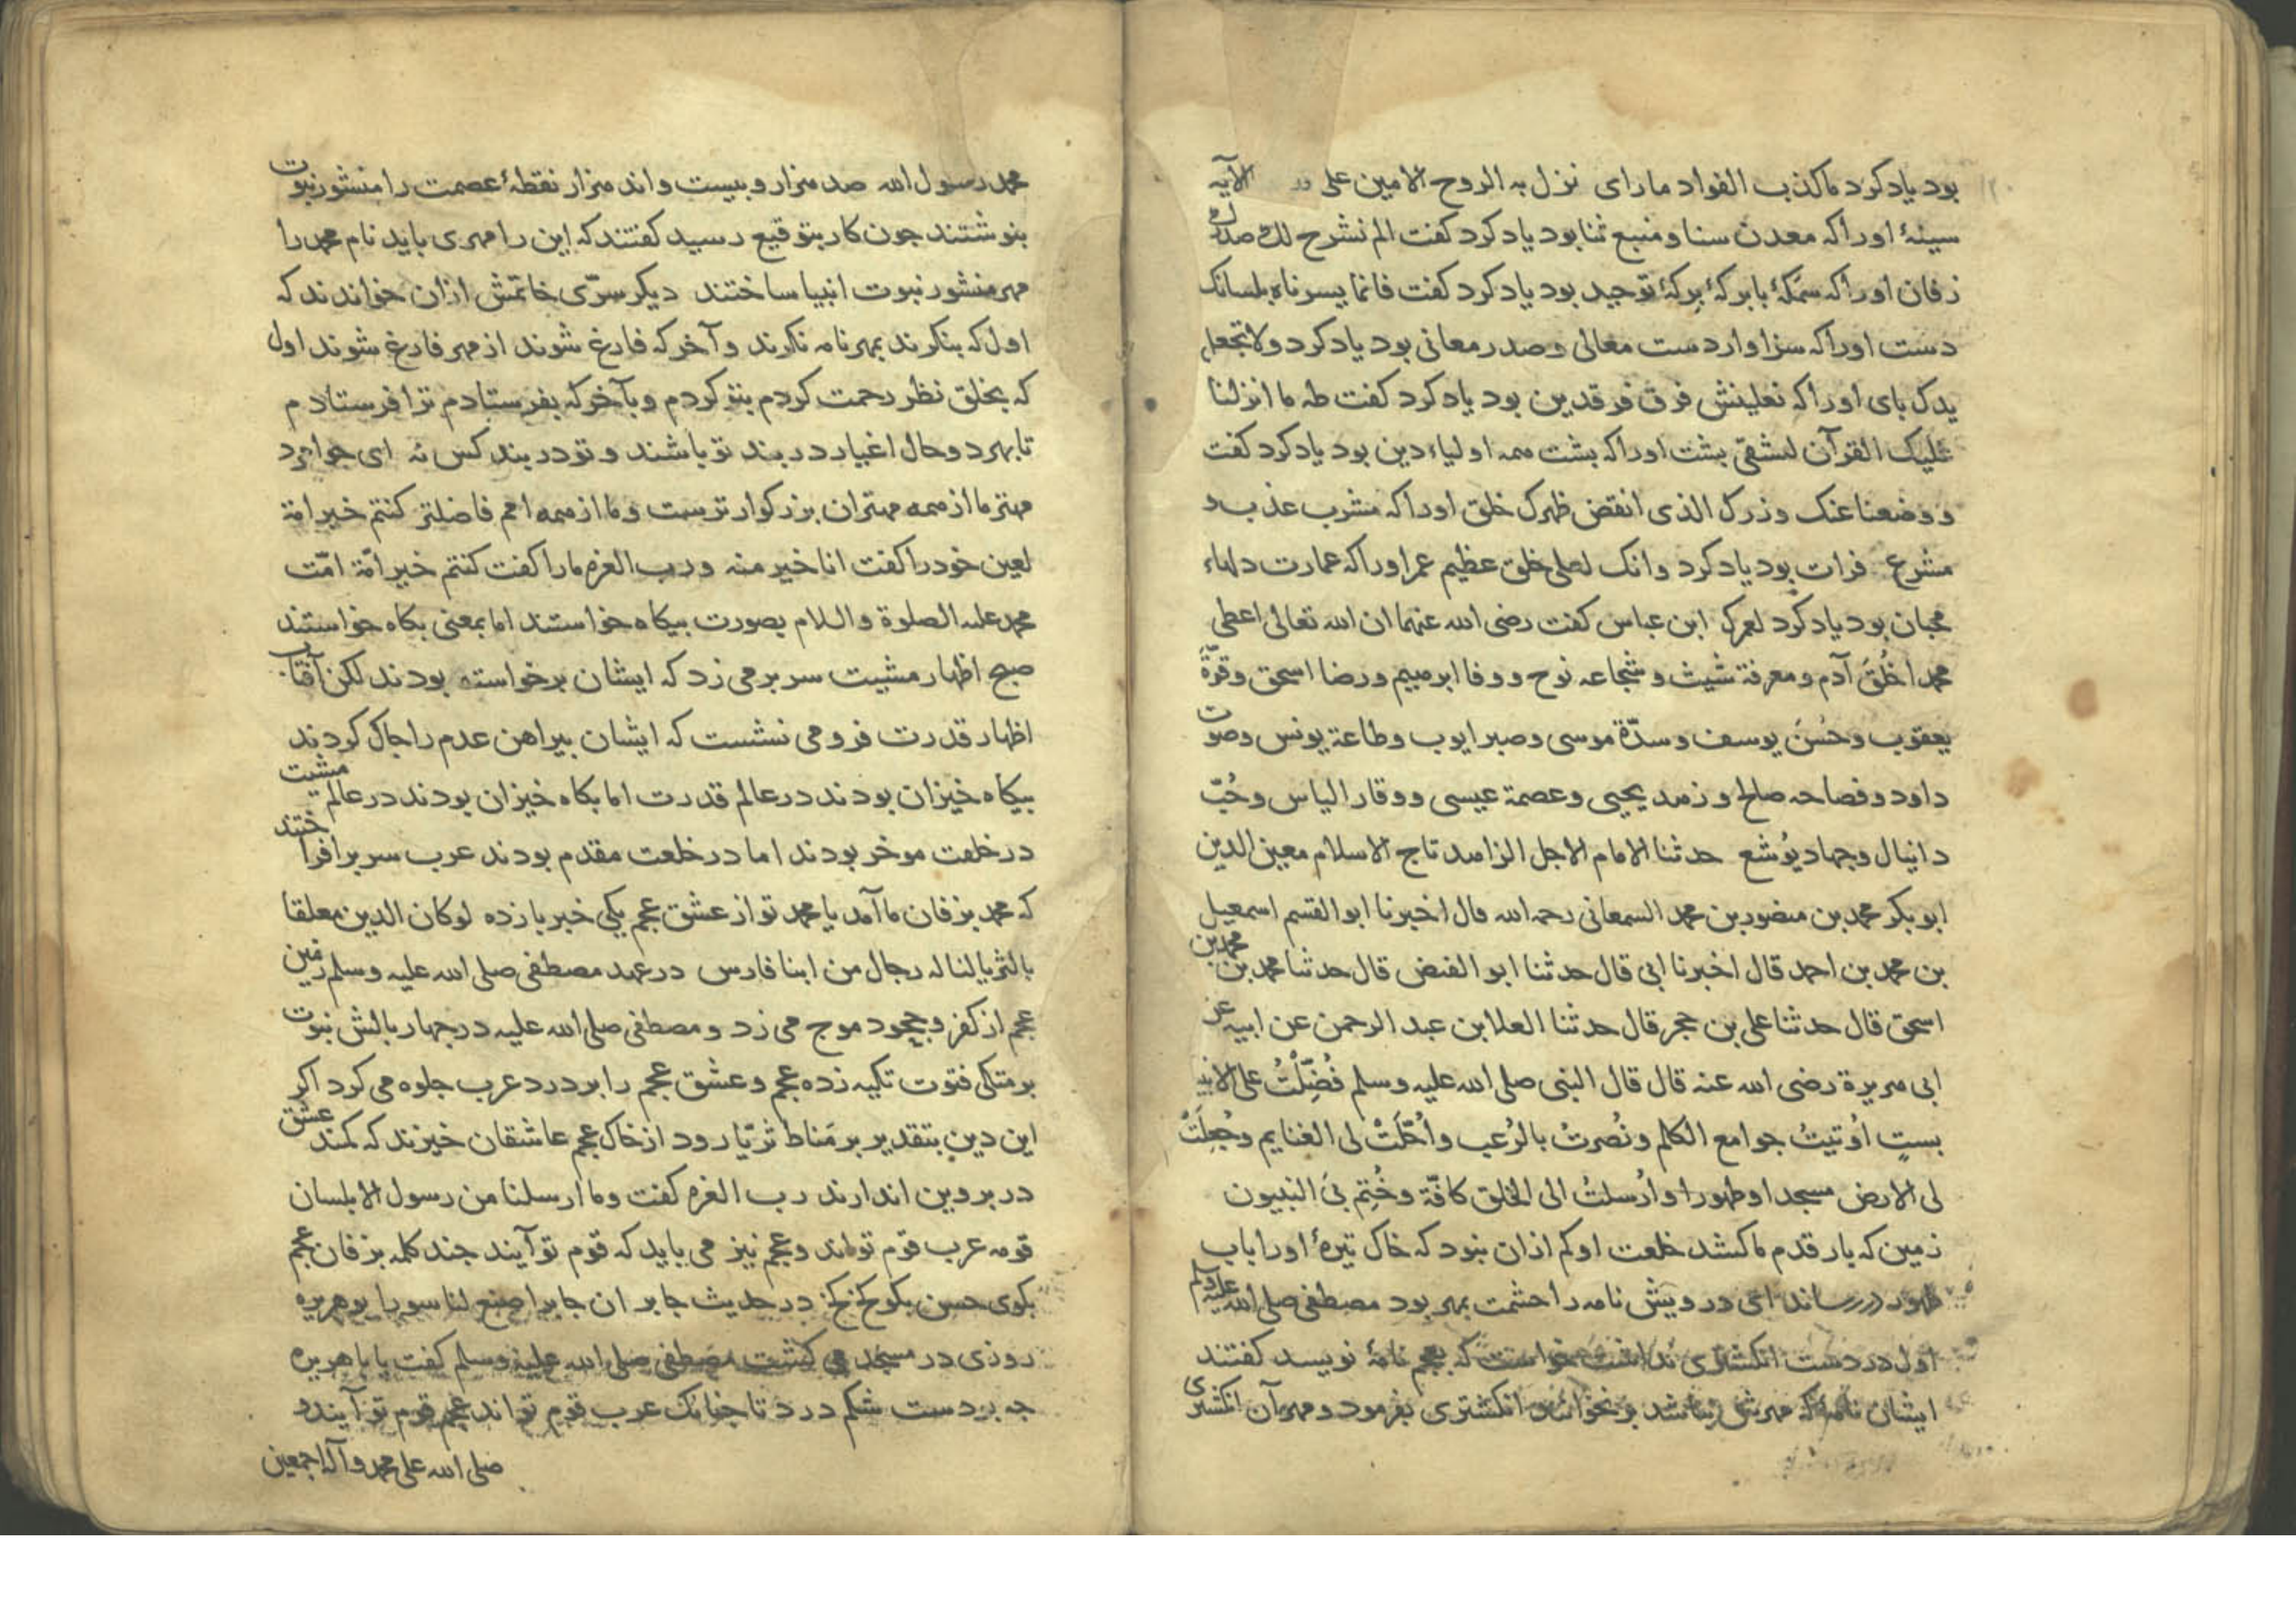 بود یاد کرد ماکذب الفواد مارای نزل به الروح الامین علی الآیه
سینهٔ اورا که معدن سنا و منبع ثنا بود یاد کرد کفت الم نشرح لک صدرک
زفان اورا که سمکهٔ بابرکهٔ برکهٔ توحید بود یاد کرد کفت فانما یسرناه بلسانک
دست اورا که سزاوار دست معالی و صدر معانی بود یاد کرد ولا تجعل
یدک بای اورا که نعلینش فرق فرقدین بود یاد کرد کفت طه ما انزلنا
علیک القرآن لتشقی بشت اورا که بشت همه اولیاء دین بود یاد کرد کفت
و وضعنا عنک وزرک الذی انقض ظهرک خلق اورا که مشرب عذب و
مشرع فرات بود یاد کرد وانک لعلی خلق عظیم عمر اورا که عمارت دلهاء
محبان بود یاد کرد لعمرک ابن عباس کفت رضی الله عنهما ان الله تعالی اعطی
محمدا خُلُقَ آدم و معرفة شیث و شجاعه نوح و وفا ابرهیم و رضا اسحق و قوّةَ
یعقوب و حُسنَ یوسف و سدّة موسی و صبر ایوب و طاعة یونس و صوت
داود و فصاحه صالح و زهد یحیی و عصمة عیسی و وقار الیاس و حُبّ
دانیال و جهاد یُوشع حدثنا الامام الاجل الزاهد تاج الاسلام معین الدین
ابو بکر محمد بن منصور بن محمد السمعانی رحمه الله قال اخبرنا ابو القسم اسمعیل
بن محمد بن احمد قال اخبرنا ابی قال حدثنا ابو الفضل قال حدثنا محمد بن محمد بن
اسحق قال حدثنا علی بن حجر قال حدثنا العلا ابن عبد الرحمن عن ابیه عن
ابی هریرة رضی الله عنه قال قال النبی صلی الله علیه وسلم فُضِّلْتُ علی الانبیا
بستٍ اُوتیتُ جوامع الکلم و نُصرتُ بالرُعب و اُحّلَتْ لی الغنایم و جُعِلَتْ
لی الارض مسجدا و طهورا و اُرسلتُ الی الخلق کافّة و خُتِم بیَ النبیون
زمین که بار قدم ما کشد خلعت او کم ازان بنود که خاک تیرهٔ اورا باب
طهور در رساند ای درویش نامه را حشمت بمهر بود مصطفی صلی الله علیه وسلم
اول در دست انکشتری نداشت خواست که بعجم نامهٔ نویسد کفتند
ایشان نامهٔ که مهرش نباشد بر نخوانند انکشتری بفرمود و مهر آن انکشتری
محمد رسول الله صد هزار و بیست و اند هزار نقطهٔ عصمت را منشور نبوت
بنوشتند جون کار بتوقیع رسید کفتند که این را مهری باید نام محمد را
مهر منشور نبوت انبیا ساختند دیکر سرّی خاتمش ازان خواندند که
اول که بنکرند بمهر نامه نکرند و آخر که فارغ شوند از مهر فارغ شوند اول
که بخلق نظر رحمت کردم بتو کردم و بآخر که بفرستادم ترا فرستادم
تا بهر دو حال اغیار در بند تو باشند و تو در بند کس نه ای جوامرد
مهتر ما از همه مهتران بزرکوارترست و ما از همه امم فاضلتر کنتم خیر امة
لعین خود را کفت انا خیر منه و رب العزه مارا کفت کنتم خیر امّة امّت
محمد علیه الصلوة والسلام بصورت بیکاه خواستند اما بمعنی بکاه خواستند
صبح اظهار مشیت سر بر می زد که ایشان برخواسته بودند لکن آفتاب
اظهار قدرت فرو می نشست که ایشان بیراهن عدم را جاک کردند
بیکاه خیزان بودند در عالم قدرت اما بکاه خیزان بودند در عالم مشیت
در خلقت موخر بودند اما در خلعت مقدم بودند عرب سر بر افراختند
که محمد بزفان ما آمد یا محمد تو از عشق عجم یکی خبر باز ده لو کان الدین معلقا
بالثریا لناله رجال من ابنا فارس در عهد مصطفی صلی الله علیه وسلم زمین
عجم از کفر و جحود موج می زد و مصطفی صلی الله علیه در جهار بالش نبوت
بر متکی فتوت تکیه زده عجم و عشق عجم را بر درد عرب جلوه می کرد اکر
این دین بتقدیر بر مَناط ثریّا رود از خاک عجم عاشقان خیزند که کمند عشق
در بروین اندازند رب العزه کفت وما ارسلنا من رسول الا بلسان
قومه عرب قوم تواند و عجم نیز می باید که قوم تو آیند جند کلمه بزفان عجم
بکوی حسن بکو کخ کخ در حدیث جابر ان جابرا صنع لنا سورا بوهریره
روزی در مسجد می کشت مصطفی صلی الله علیه وسلم کفت یابا هریره
جه بردست شکم درد تا جنانک عرب قوم تواند عجم قوم تو آیند و
صلی الله علی محمد وآله اجمعین